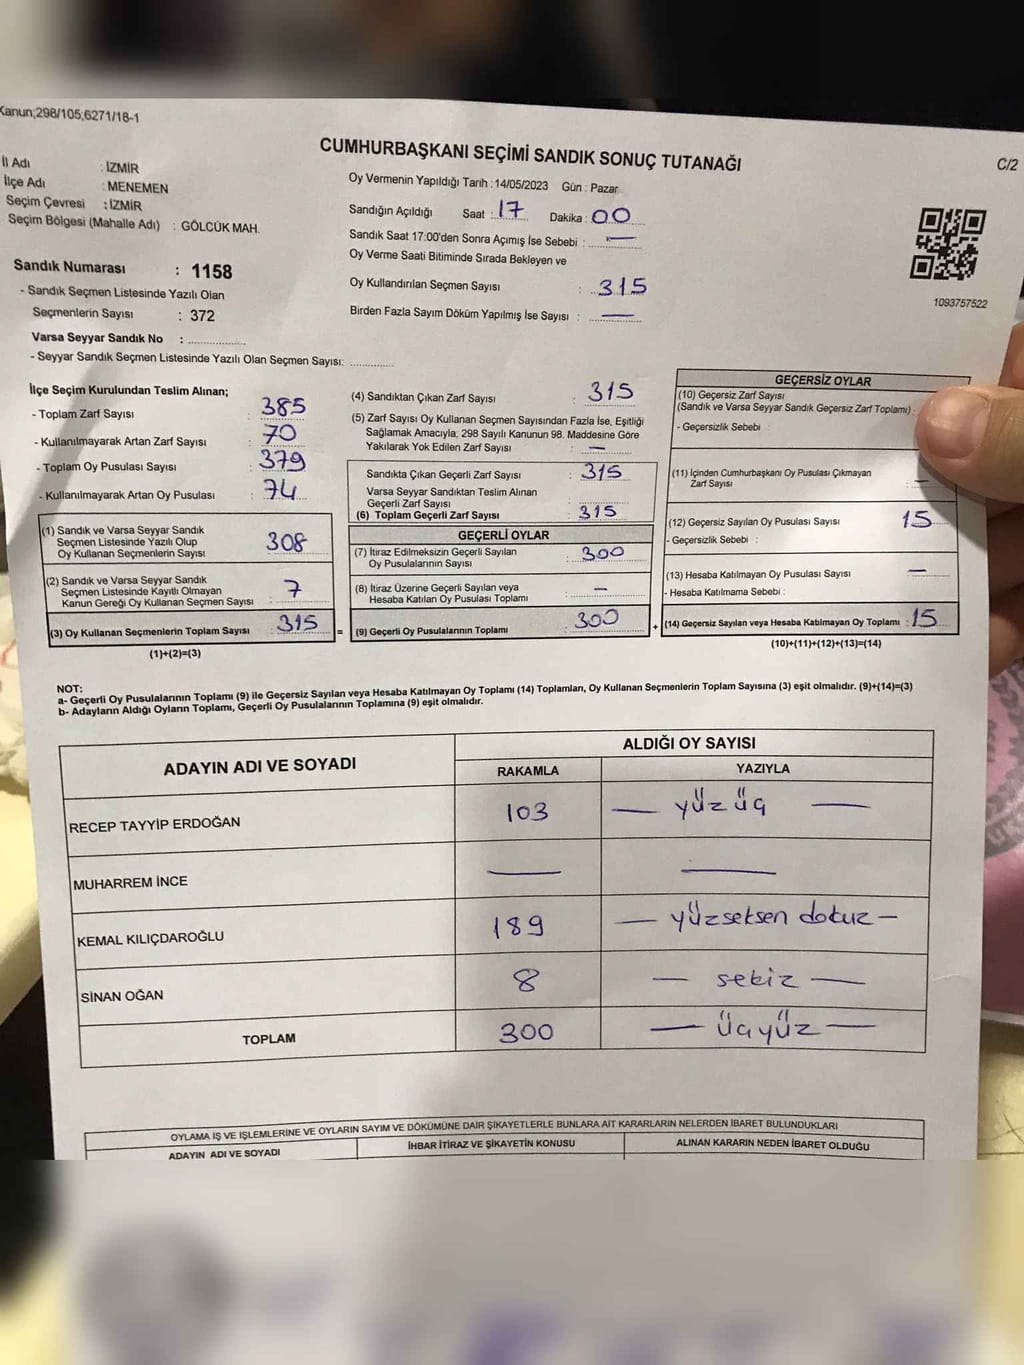 Kanun;298/105;6271/18-1
CUMHURBAŞKANI SEÇİMİ SANDIK SONUÇ TUTANAĞI
C/2
İl Adı : İZMİR
İlçe Adı : MENEMEN
Seçim Çevresi : İZMİR
Seçim Bölgesi (Mahalle Adı) : GÖLCÜK MAH.
Sandık Numarası : 1158
- Sandık Seçmen Listesinde Yazılı Olan
Seçmenlerin Sayısı : 372
Varsa Seyyar Sandık No :
- Seyyar Sandık Seçmen Listesinde Yazılı Olan Seçmen Sayısı:
Oy Vermenin Yapıldığı Tarih :14/05/2023 Gün : Pazar
Sandığın Açıldığı Saat : 17 Dakika : 00
Sandık Saat 17:00'den Sonra Açımış İse Sebebi : —
Oy Verme Saati Bitiminde Sırada Bekleyen ve
Oy Kullandırılan Seçmen Sayısı : 315
Birden Fazla Sayım Döküm Yapılmış İse Sayısı : —
1093757522
İlçe Seçim Kurulundan Teslim Alınan;
- Toplam Zarf Sayısı : 385
- Kullanılmayarak Artan Zarf Sayısı : 70
- Toplam Oy Pusulası Sayısı : 379
- Kullanılmayarak Artan Oy Pusulası : 74
(1) Sandık ve Varsa Seyyar Sandık
Seçmen Listesinde Yazılı Olup
Oy Kullanan Seçmenlerin Sayısı 308
(2) Sandık ve Varsa Seyyar Sandık
Seçmen Listesinde Kayıtlı Olmayan
Kanun Gereği Oy Kullanan Seçmen Sayısı : 7
(3) Oy Kullanan Seçmenlerin Toplam Sayısı : 315
(1)+(2)=(3)
(4) Sandıktan Çıkan Zarf Sayısı : 315
(5) Zarf Sayısı Oy Kullanan Seçmen Sayısından Fazla İse, Eşitliği
Sağlamak Amacıyla; 298 Sayılı Kanunun 98. Maddesine Göre
Yakılarak Yok Edilen Zarf Sayısı : —
Sandıkta Çıkan Geçerli Zarf Sayısı : 315
Varsa Seyyar Sandıktan Teslim Alınan
Geçerli Zarf Sayısı :
(6) Toplam Geçerli Zarf Sayısı : 315
GEÇERLİ OYLAR
(7) İtiraz Edilmeksizin Geçerli Sayılan
Oy Pusulalarının Sayısı : 300
(8) İtiraz Üzerine Geçerli Sayılan veya
Hesaba Katılan Oy Pusulası Toplamı : —
= (9) Geçerli Oy Pusulalarının Toplamı : 300
GEÇERSİZ OYLAR
(10) Geçersiz Zarf Sayısı
(Sandık ve Varsa Seyyar Sandık Geçersiz Zarf Toplamı) :
- Geçersizlik Sebebi :
(11) İçinden Cumhurbaşkanı Oy Pusulası Çıkmayan
Zarf Sayısı : —
(12) Geçersiz Sayılan Oy Pusulası Sayısı : 15
- Geçersizlik Sebebi :
(13) Hesaba Katılmayan Oy Pusulası Sayısı : —
- Hesaba Katılmama Sebebi :
+ (14) Geçersiz Sayılan veya Hesaba Katılmayan Oy Toplamı : 15
(10)+(11)+(12)+(13)=(14)
NOT:
a- Geçerli Oy Pusulalarının Toplamı (9) ile Geçersiz Sayılan veya Hesaba Katılmayan Oy Toplamı (14) Toplamları, Oy Kullanan Seçmenlerin Toplam Sayısına (3) eşit olmalıdır. (9)+(14)=(3)
b- Adayların Aldığı Oyların Toplamı, Geçerli Oy Pusulalarının Toplamına (9) eşit olmalıdır.
ADAYIN ADI VE SOYADI
ALDIĞI OY SAYISI
RAKAMLA YAZIYLA
RECEP TAYYİP ERDOĞAN 103 — yüz üç —
MUHARREM İNCE — —
KEMAL KILIÇDAROĞLU 189 — yüzseksen dokuz —
SİNAN OĞAN 8 — sekiz —
TOPLAM 300 — üçyüz —
OYLAMA İŞ VE İŞLEMLERİNE VE OYLARIN SAYIM VE DÖKÜMÜNE DAİR ŞİKAYETLERLE BUNLARA AİT KARARLARIN NELERDEN İBARET BULUNDUKLARI
ADAYIN ADI VE SOYADI İHBAR İTİRAZ VE ŞİKAYETİN KONUSU ALINAN KARARIN NEDEN İBARET OLDUĞU